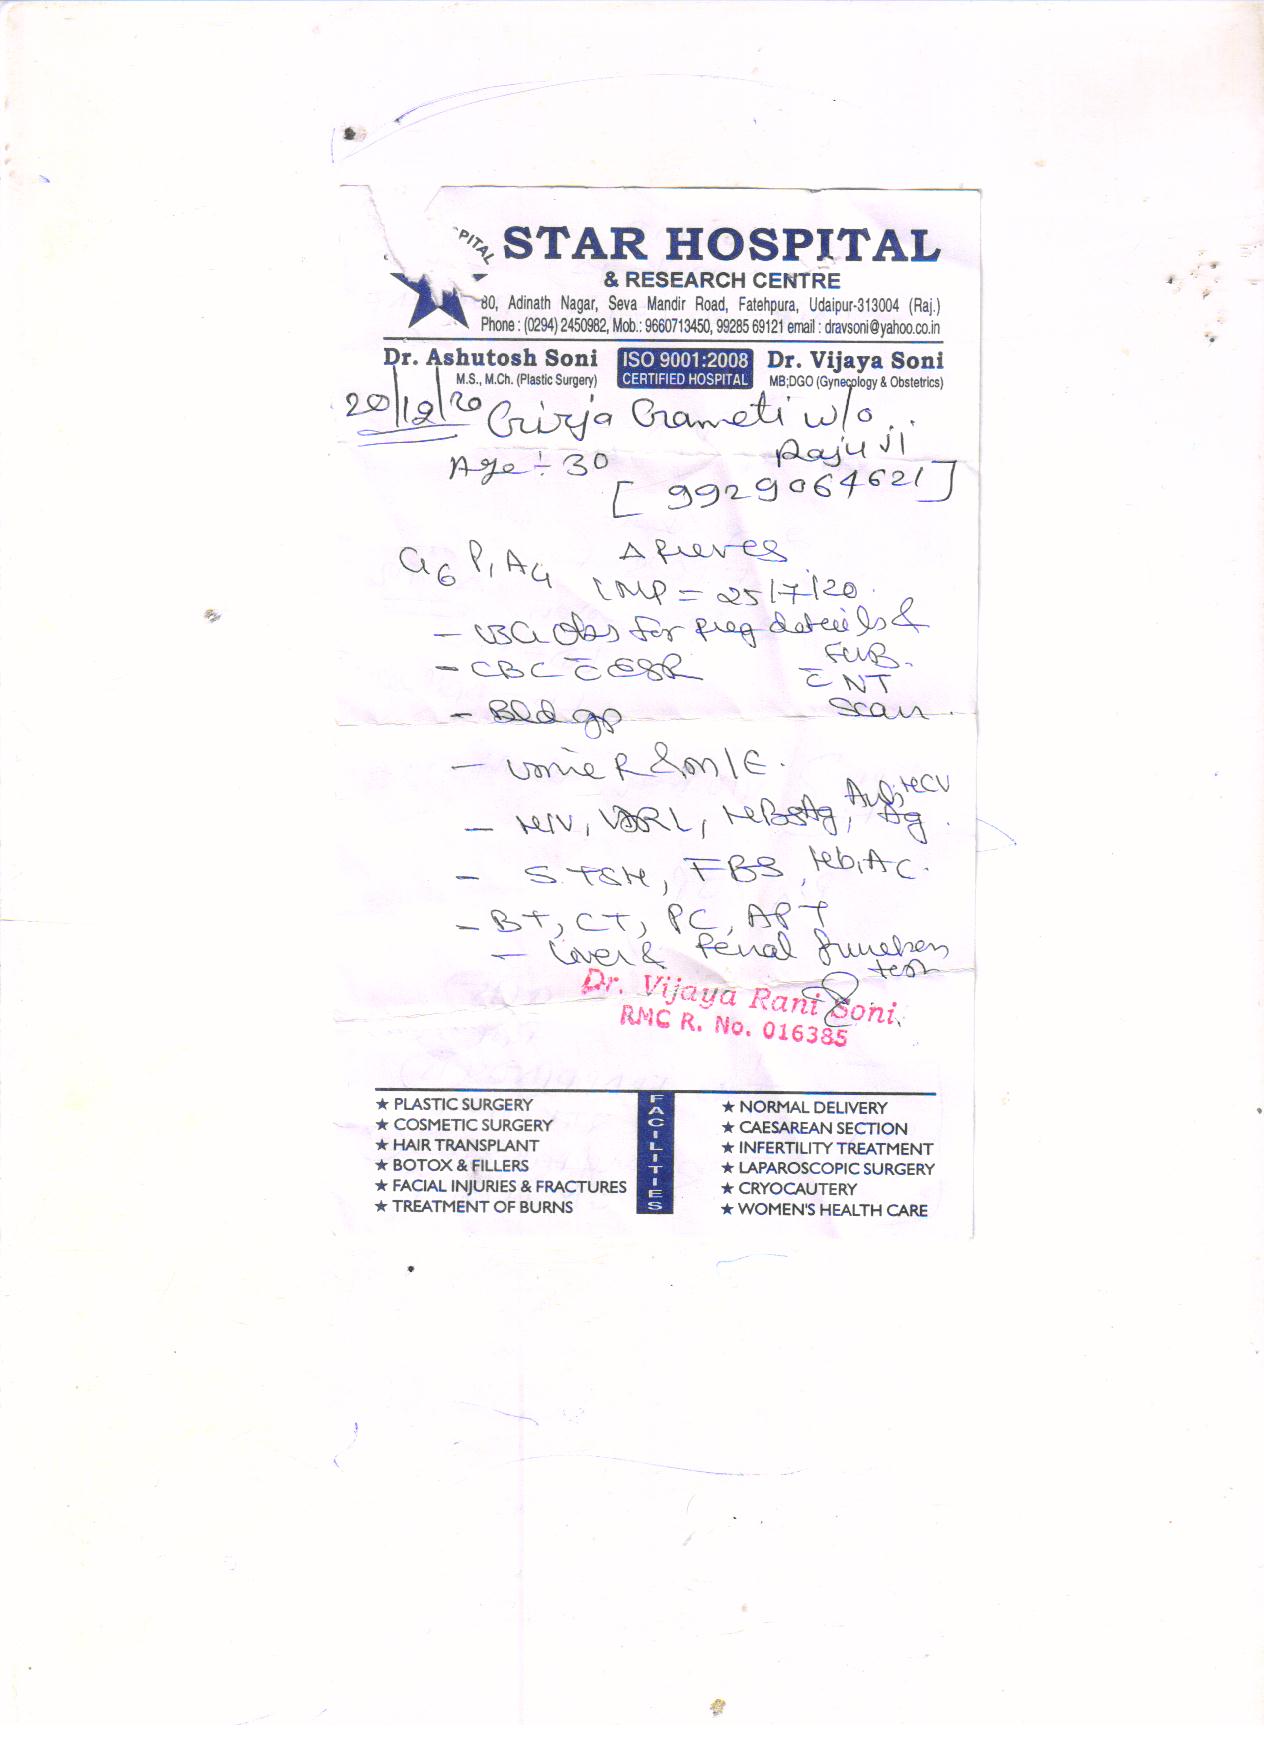 PITAL
STAR HOSPITAL
& RESEARCH CENTRE
80, Adinath Nagar, Seva Mandir Road, Fatehpura, Udaipur-313004 (Raj.)
Phone : (0294) 2450982, Mob.: 9660713450, 99285 69121 email : dravsoni@yahoo.co.in
Dr. Ashutosh Soni ISO 9001:2008 Dr. Vijaya Soni
M.S., M.Ch. (Plastic Surgery) CERTIFIED HOSPITAL MB;DGO (Gynecology & Obstetrics)
20/12/20 Girja Grameti w/o ..
Raju Ji
Age ÷ 30
[ 9929064621 ]
G6 P1 A4
LMP = 25/7/20.
- USG Obs for preg details &
FWB.
- CBC c̄ ESR c̄ NT
- Bld gp Scan.
- Urine R & M/E.
- HIV, VDRL, HBsAg, Anti HCV
Ag.
- S. TSH, FBS, Hb1AC.
- BT, CT, PC, APT
- Liver & Renal function
test
Dr. Vijaya Rani Soni
RMC R. No. 016385
FACILITIES
★ PLASTIC SURGERY
★ COSMETIC SURGERY
★ HAIR TRANSPLANT
★ BOTOX & FILLERS
★ FACIAL INJURIES & FRACTURES
★ TREATMENT OF BURNS
★ NORMAL DELIVERY
★ CAESAREAN SECTION
★ INFERTILITY TREATMENT
★ LAPAROSCOPIC SURGERY
★ CRYOCAUTERY
★ WOMEN'S HEALTH CARE